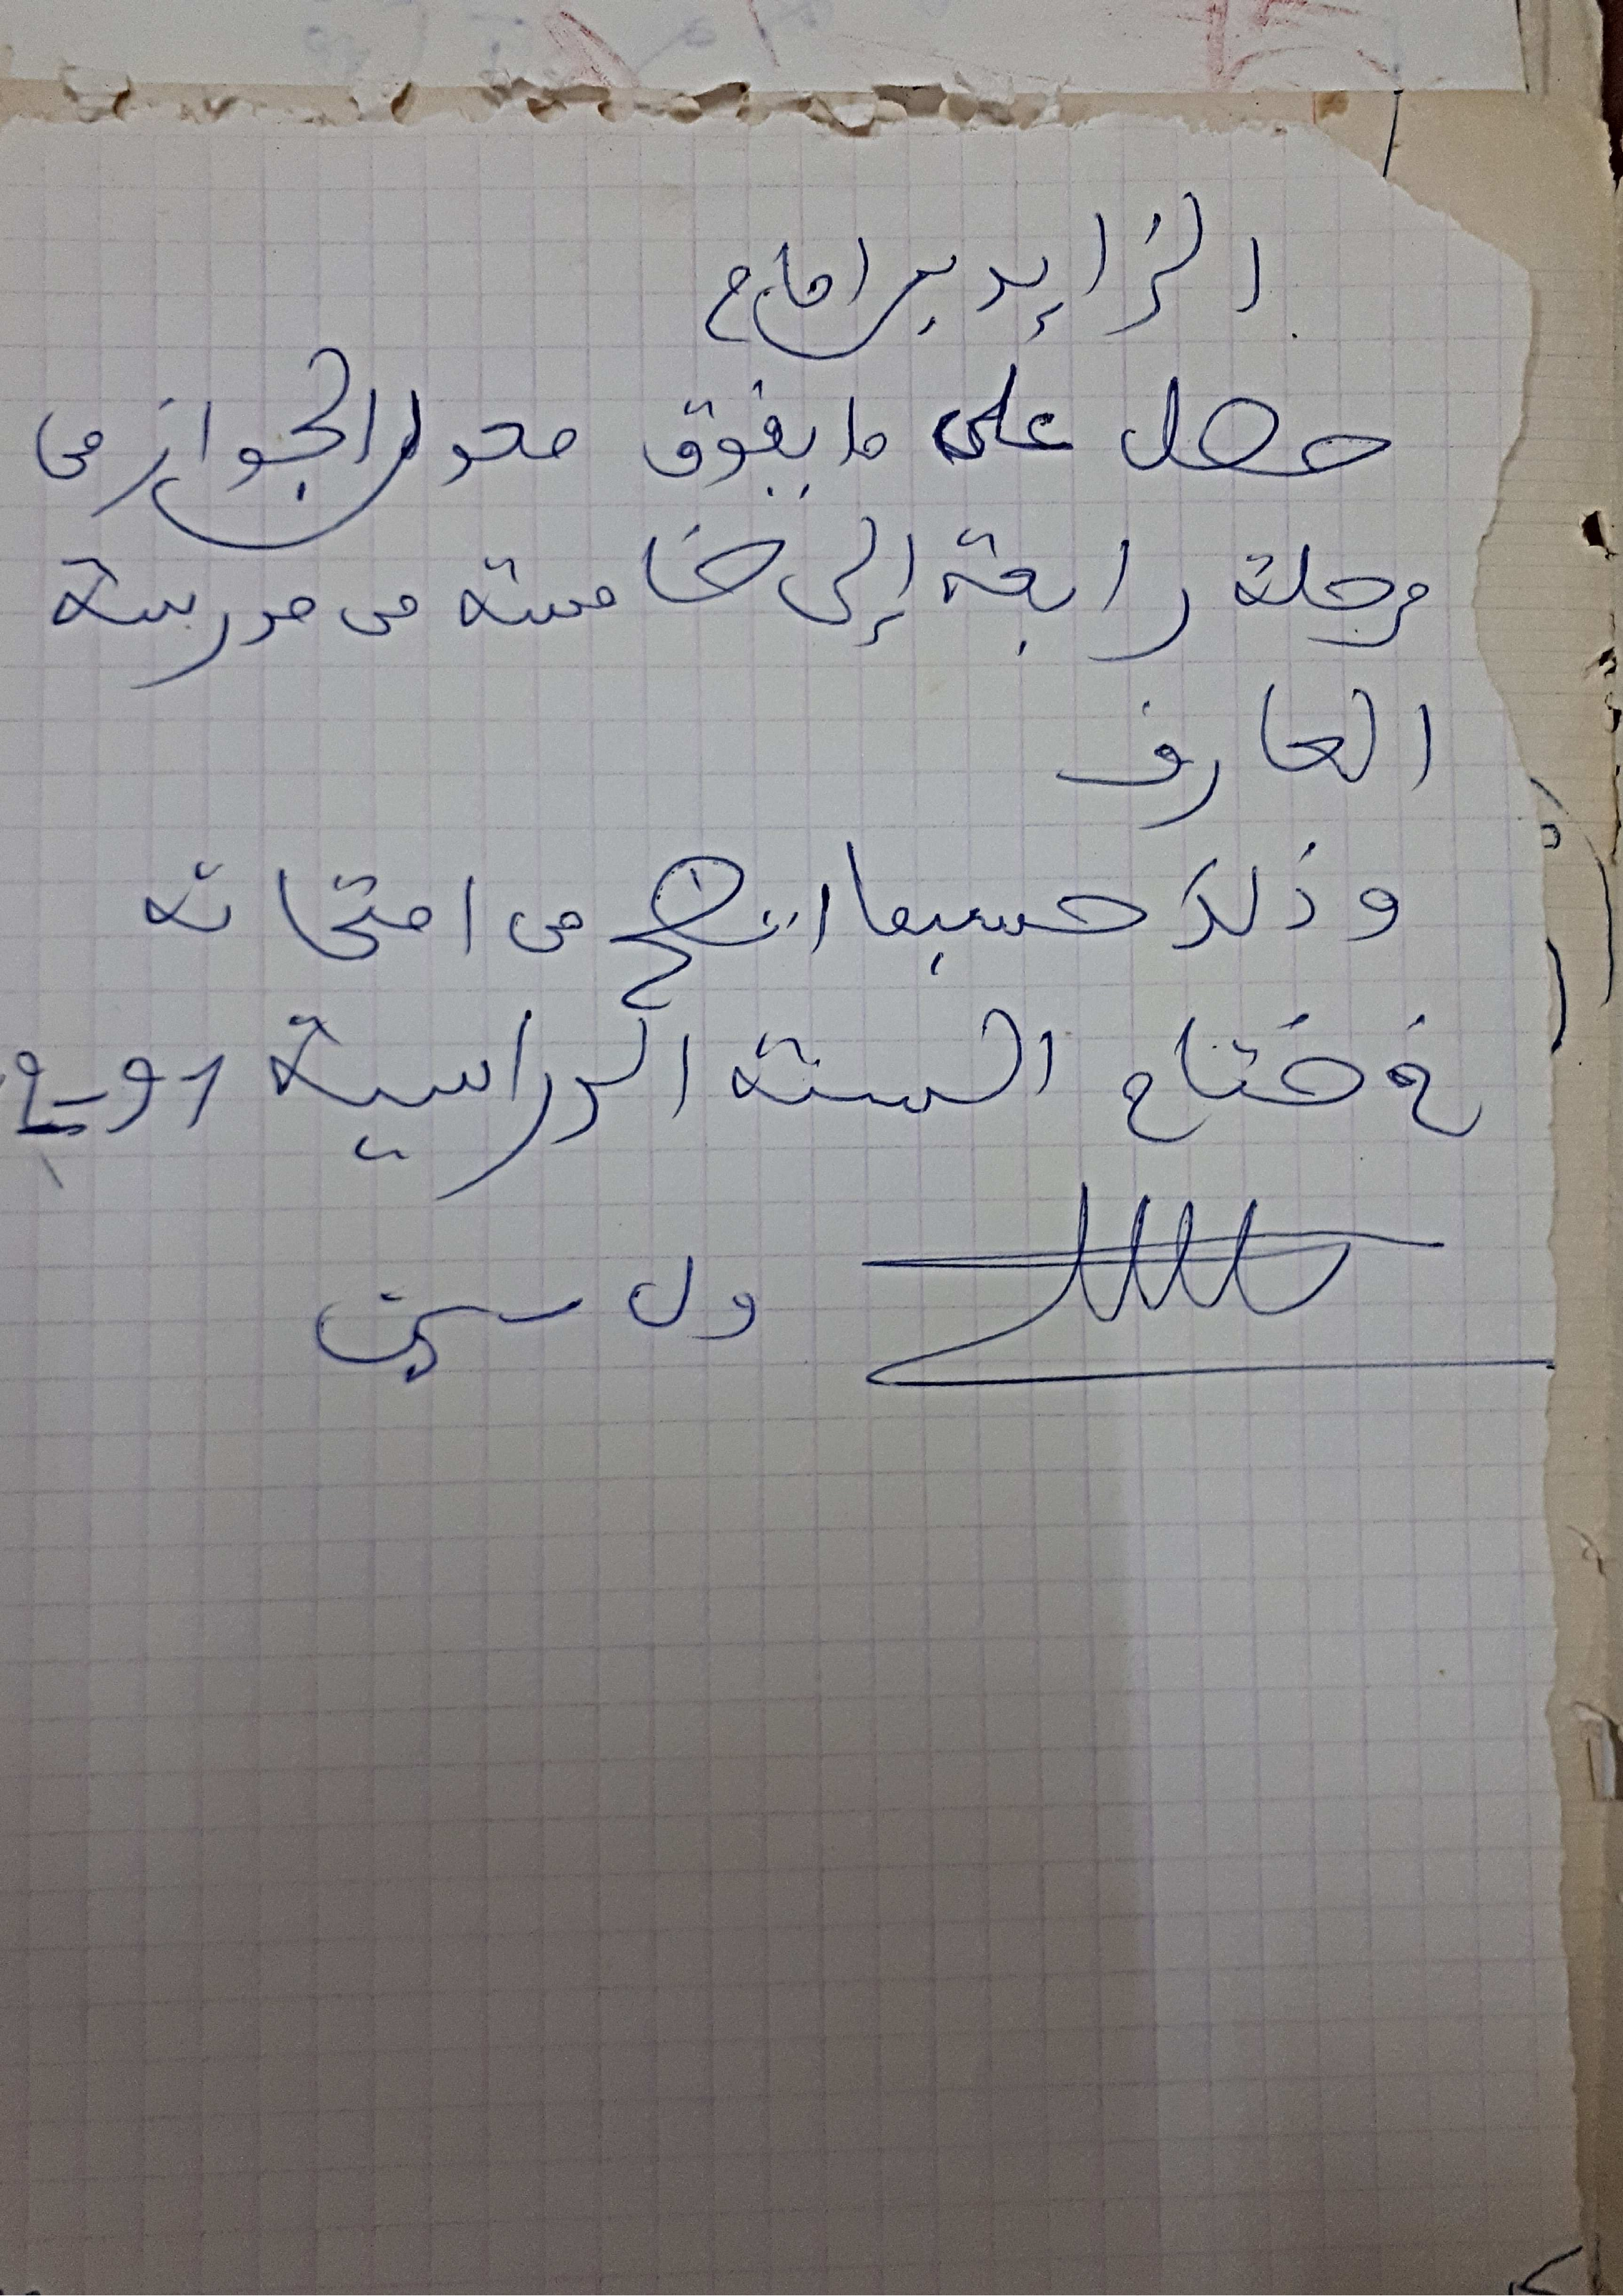 الزايد براماح
حصل على ما يفوق معدل الجواز من
مرحلة رابعة إلى خامسة من مدرسة
العارف
وذلك حسبما اتضح من امتحانه
في ختام السنة الدراسية
ول